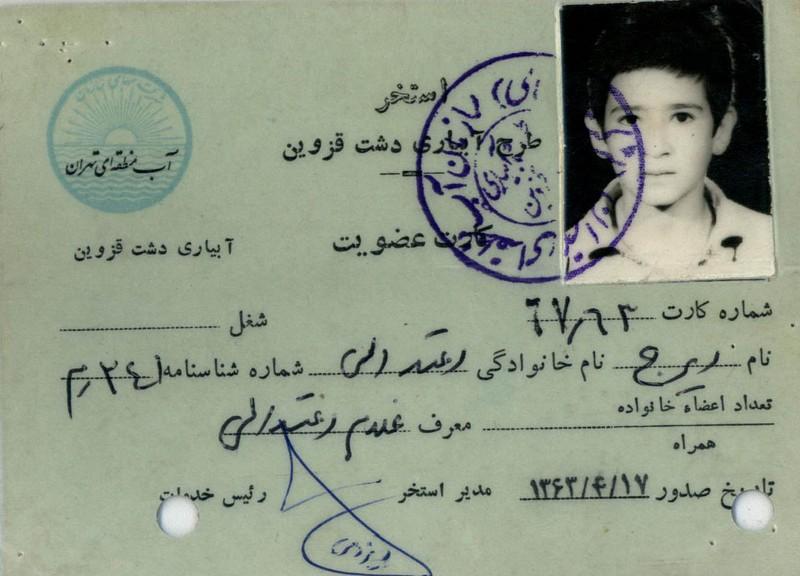 استخر
طرح آبیاری دشت قزوین
آب منطقه‌ای تهران
کارت عضویت
آبیاری دشت قزوین
شماره کارت ۶۷٫۶۳
شغل
نام ایرج نام خانوادگی اعتدالی شماره شناسنامه
تعداد اعضاء خانواده
معرف غلام اعتدالی
همراه
تاریخ صدور ۱۳۶۳/۴/۱۷ مدیر استخر رئیس خدمات